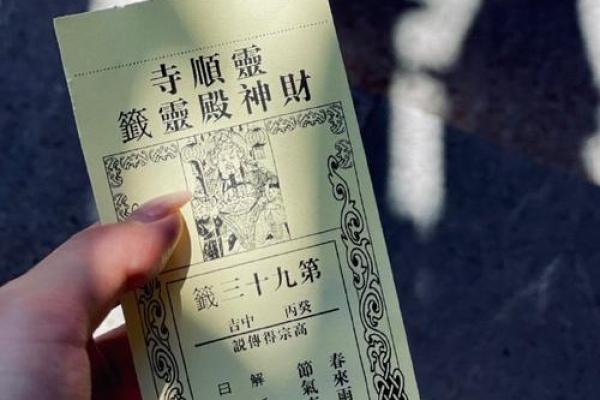 靈順寺
財神殿靈籤
第九十三籤
癸丙 中吉
高宗得傳說
春來雨
節氣
解
曰